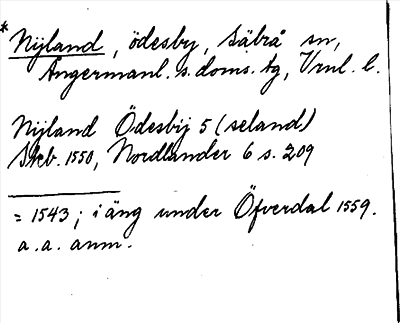 * Nijland, ödesby, Säbrå sn,
Ångermanl. s. doms. tg, Vrnl. l.
Nijland Ödesbij 5 (seland)
Skb. 1550, Nordlander 6 s. 209
= 1543; i äng under Öfverdal 1559.
a. a. anm.